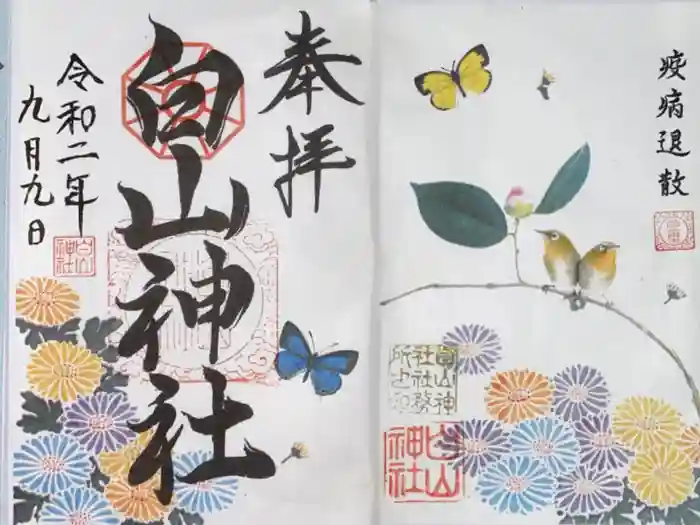 疫病退散
奉拝
白山神社
令和二年
九月九日
白山
神社
白山神
社社務
所之印
白山
神社